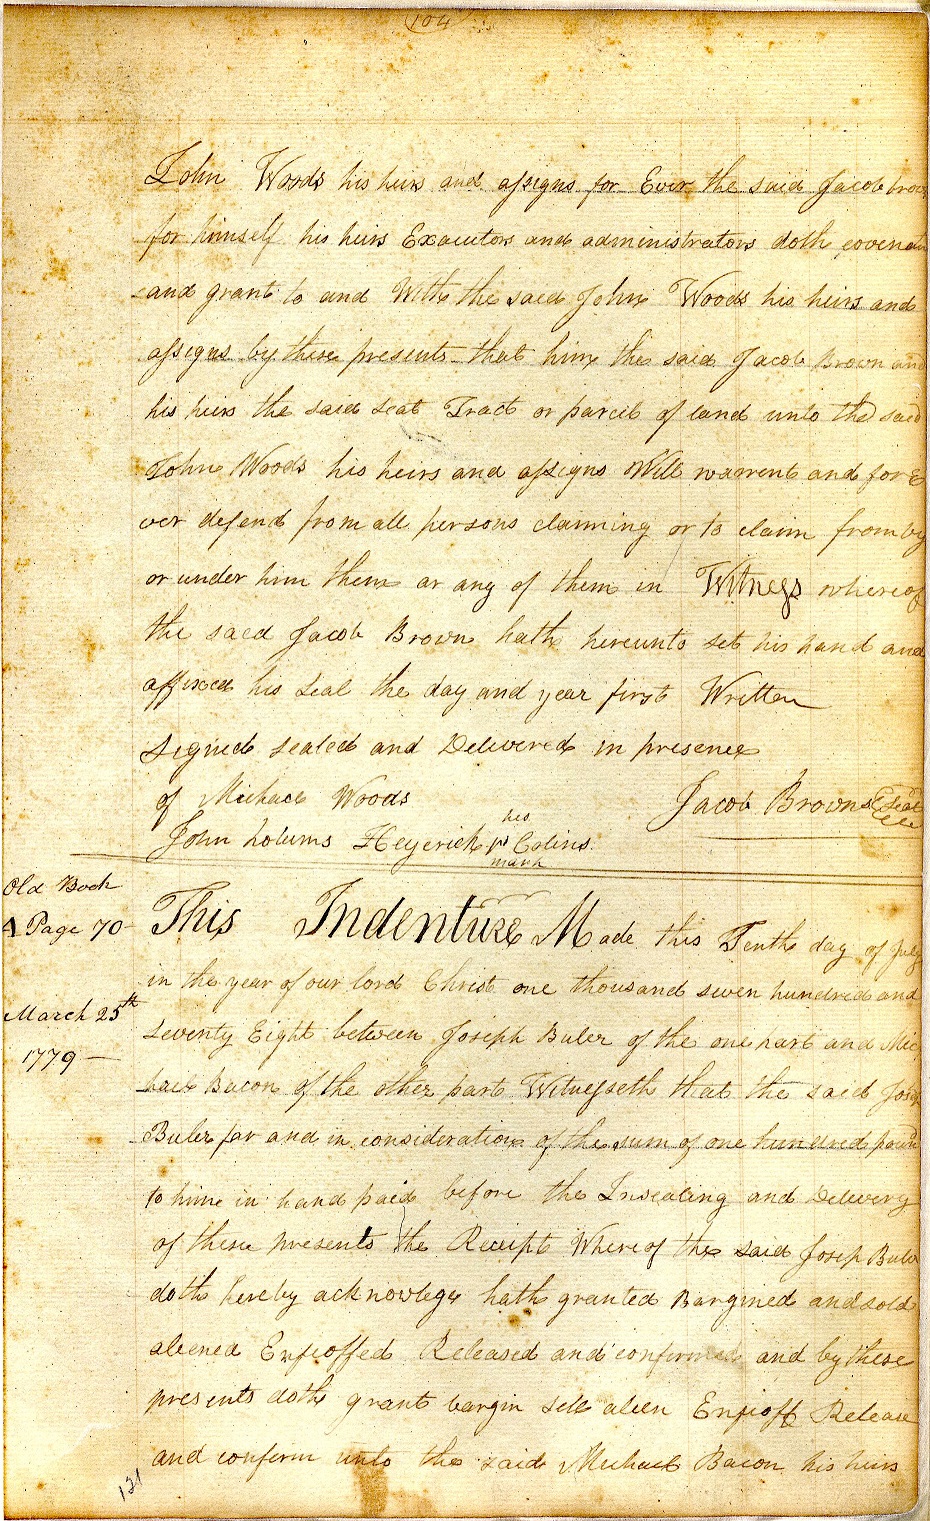 104
John Woods his heirs and assigns for Ever the said Jacob brow
for himself his heirs Exacutors and administrators doth covenan
and grant to and With the said John Woods his heirs and
assigns by these presents that him the said Jacob Brown and
his heirs the said seat Tract or parcil of land unto the said
John Woods his heirs and assigns Will warrent and for E
ver defend from all persons claiming or to claim from by
or under him them or any of them in Witness whereof
the saed Jacob Brown hath hereunto set his hand and
affixed his seal the day and year first Written
Signed sealed and Delivered in presence
of Michael Woods Jacob Brown Seal
his
John Colums Heyerick Colins
mark
Old Book
A Page 70
March 25th
1779
This Indenture Made this Tenth day of July
in the year of our lord Christ one thousand seven hundred and
seventy Eight between Joseph Buler of the one part and Mic
hael Bacon of the other part Witnesseth that the said Josep
Buler for and in consideration of the sum of one hundred pound
to hime in hand paid before the Insealing and Delivery
of these presents the Receipt Where of the said Josep Buler
doth hereby acknowlege hath granted Bargined and sold
aliened Enfeoffed Released and confirmed and by these
presents doth grant bargin sell alien Enfeoff Release
and conferm unto the said Michael Bacon his heirs
121